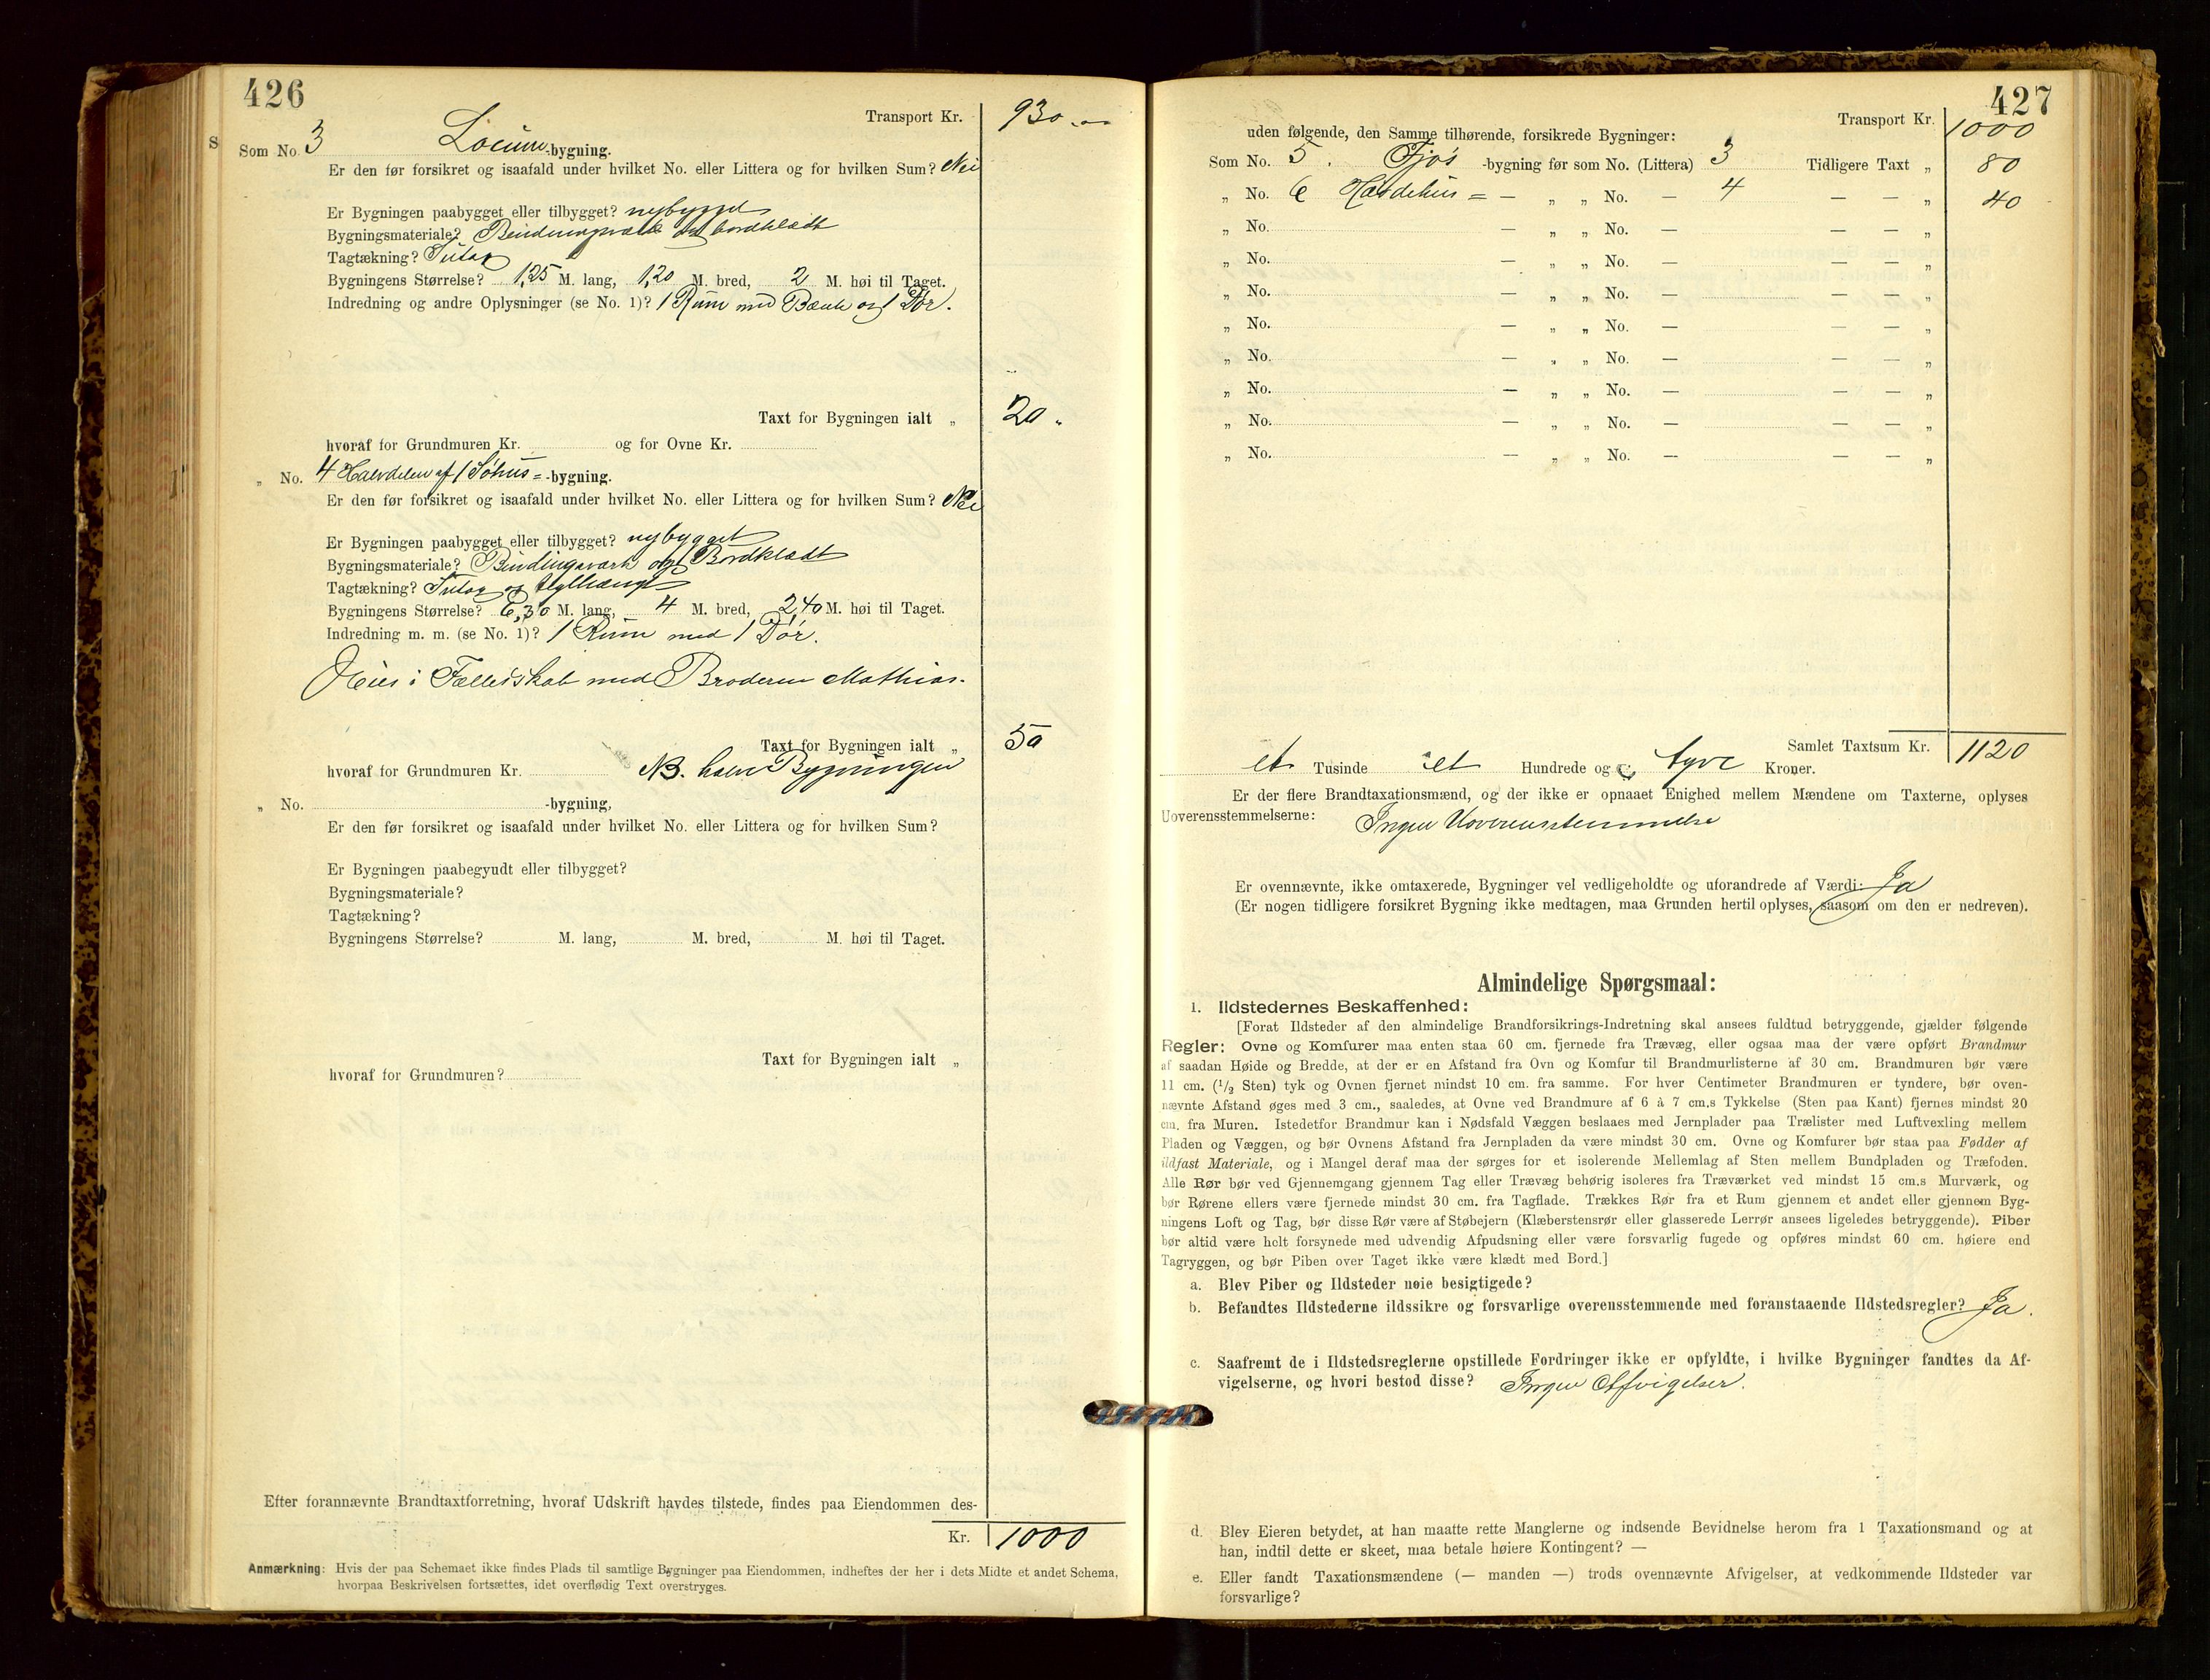 426
Transport Kr. 930.00
Som No. 3 Locum-bygning.
Er den før forsikret og isaafald under hvilket No. eller Littera og for hvilken Sum? Nei
Er Bygningen paabygget eller tilbygget? nybygget
Bygningsmateriale? Bindingsværk og bordklædt
Tagtækning?
Bygningens Størrelse? 1,25 M. lang, 1,20 M. bred, 2 M. høi til Taget.
Indredning og andre Oplysninger (se No. 1)? 1 Rum med Bænk og 1 Dør.
Taxt for Bygningen ialt „ 20 „
hvoraf for Grundmuren Kr. og for Ovne Kr.
„ No. 4 Halvdelen af 1 Søhus=-bygning.
Er den før forsikret og isaafald under hvilket No. eller Littera og for hvilken Sum? Nei
Er Bygningen paabygget eller tilbygget? nybygget
Bygningsmateriale? Bindingsværk og Bordklædt
Tagtækning?
Bygningens Størrelse? 6,30 M. lang, 4 M. bred, 2,40 M. høi til Taget.
Indredning m. m. (se No. 1)? 1 Rum med 1 Dør.
Eies i Fællesskab med Broderen Mathias.
Taxt for Bygningen ialt „ 50
hvoraf for Grundmuren Kr. NB. halve Bygningen
„ No. -bygning,
Er den før forsikret og isaafald under hvilket No. eller Littera og for hvilken Sum?
Er Bygningen paabegyudt eller tilbygget?
Bygningsmateriale?
Tagtækning?
Bygningens Størrelse? M. lang, M. bred, M. høi til Taget.
Taxt for Bygningen ialt „
hvoraf for Grundmuren?
Efter forannævnte Brandtaxtforretning, hvoraf Udskrift havdes tilstede, findes paa Eiendommen des-
Kr. 1000
Anmærkning: Hvis der paa Schemaet ikke findes Plads til samtlige Bygninger paa Eiendommen, indheftes der her i dets Midte et andet Schema,
hvorpaa Beskrivelsen fortsættes, idet overflødig Text overstryges.
427
Transport Kr. 1000
uden følgende, den Samme tilhørende, forsikrede Bygninger:
Som No. 5. Fjøs -bygning før som No. (Littera) 3 Tidligere Taxt „ 80
„ No. 6 Havdehus = — „ „ No. — 4 — — „ 40
„ No. — „ „ No. — — — „
„ No. — „ „ No. — — — „
„ No. — „ „ No. — — — „
„ No. — „ „ No. — — — „
„ No. — „ „ No. — — — „
„ No. — „ „ No. — — — „
„ No. — „ „ No. — — — „
„ No. — „ „ No. — — — „
Samlet Taxtsum Kr. 1120
et Tusinde et Hundrede og tyve Kroner.
Er der flere Brandtaxationsmænd, og der ikke er opnaaet Enighed mellem Mændene om Taxterne, oplyses
Uoverensstemmelserne: Ingen Uoverensstemmelse
Er ovennævnte, ikke omtaxerede, Bygninger vel vedligeholdte og uforandrede af Værdi: Ja
(Er nogen tidligere forsikret Bygning ikke medtagen, maa Grunden hertil oplyses, saasom om den er nedreven).
Almindelige Spørgsmaal:
1. Ildstedernes Beskaffenhed:
[Forat Ildsteder af den almindelige Brandforsikrings-Indretning skal ansees fuldtud betryggende, gjælder følgende
Regler: Ovne og Komfurer maa enten staa 60 cm. fjernede fra Trævæg, eller ogsaa maa der være opført Brandmur
af saadan Høide og Bredde, at der er en Afstand fra Ovn og Komfur til Brandmurlisterne af 30 cm. Brandmuren bør være
11 cm. (1/2 Sten) tyk og Ovnen fjernet mindst 10 cm. fra samme. For hver Centimeter Brandmuren er tyndere, bør oven-
nævnte Afstand øges med 3 cm., saaledes, at Ovne ved Brandmure af 6 à 7 cm.s Tykkelse (Sten paa Kant) fjernes mindst 20
cm. fra Muren. Istedetfor Brandmur kan i Nødsfald Væggen beslaaes med Jernplader paa Trælister med Luftvexling mellem
Pladen og Væggen, og bør Ovnens Afstand fra Jernpladen da være mindst 30 cm. Ovne og Komfurer bør staa paa Fødder af
ildfast Materiale, og i Mangel deraf maa der sørges for et isolerende Mellemlag af Sten mellem Bundpladen og Træfoden.
Alle Rør bør ved Gjennemgang gjennem Tag eller Trævæg behørig isoleres fra Træværket ved mindst 15 cm.s Murværk, og
bør Rørene ellers være fjernede mindst 30 cm. fra Tagflade. Trækkes Rør fra et Rum gjennem et andet eller gjennem Byg-
ningens Loft og Tag, bør disse Rør være af Støbejern (Klæberstensrør eller glasserede Lerrør ansees ligeledes betryggende). Piber
bør altid være helt forsynede med udvendig Afpudsning eller være forsvarlig fugede og opføres mindst 60 cm. høiere end
Tagryggen, og bør Piben over Taget ikke være klædt med Bord.]
a. Blev Piber og Ildsteder nøie besigtigede?
b. Befandtes Ildstederne ildssikre og forsvarlige overensstemmende med foranstaaende Ildstedsregler? Ja.
c. Saafremt de i Ildstedsreglerne opstillede Fordringer ikke er opfyldte, i hvilke Bygninger fandtes da Af-
vigelserne, og hvori bestod disse? Ingen Afvigelser.
d. Blev Eieren betydet, at han maatte rette Manglerne og indsende Bevidnelse herom fra 1 Taxationsmand og at
han, indtil dette er skeet, maa betale høiere Kontingent? —
e. Eller fandt Taxationsmændene (— manden —) trods ovennævnte Afvigelser, at vedkommende Ildsteder var
forsvarlige?